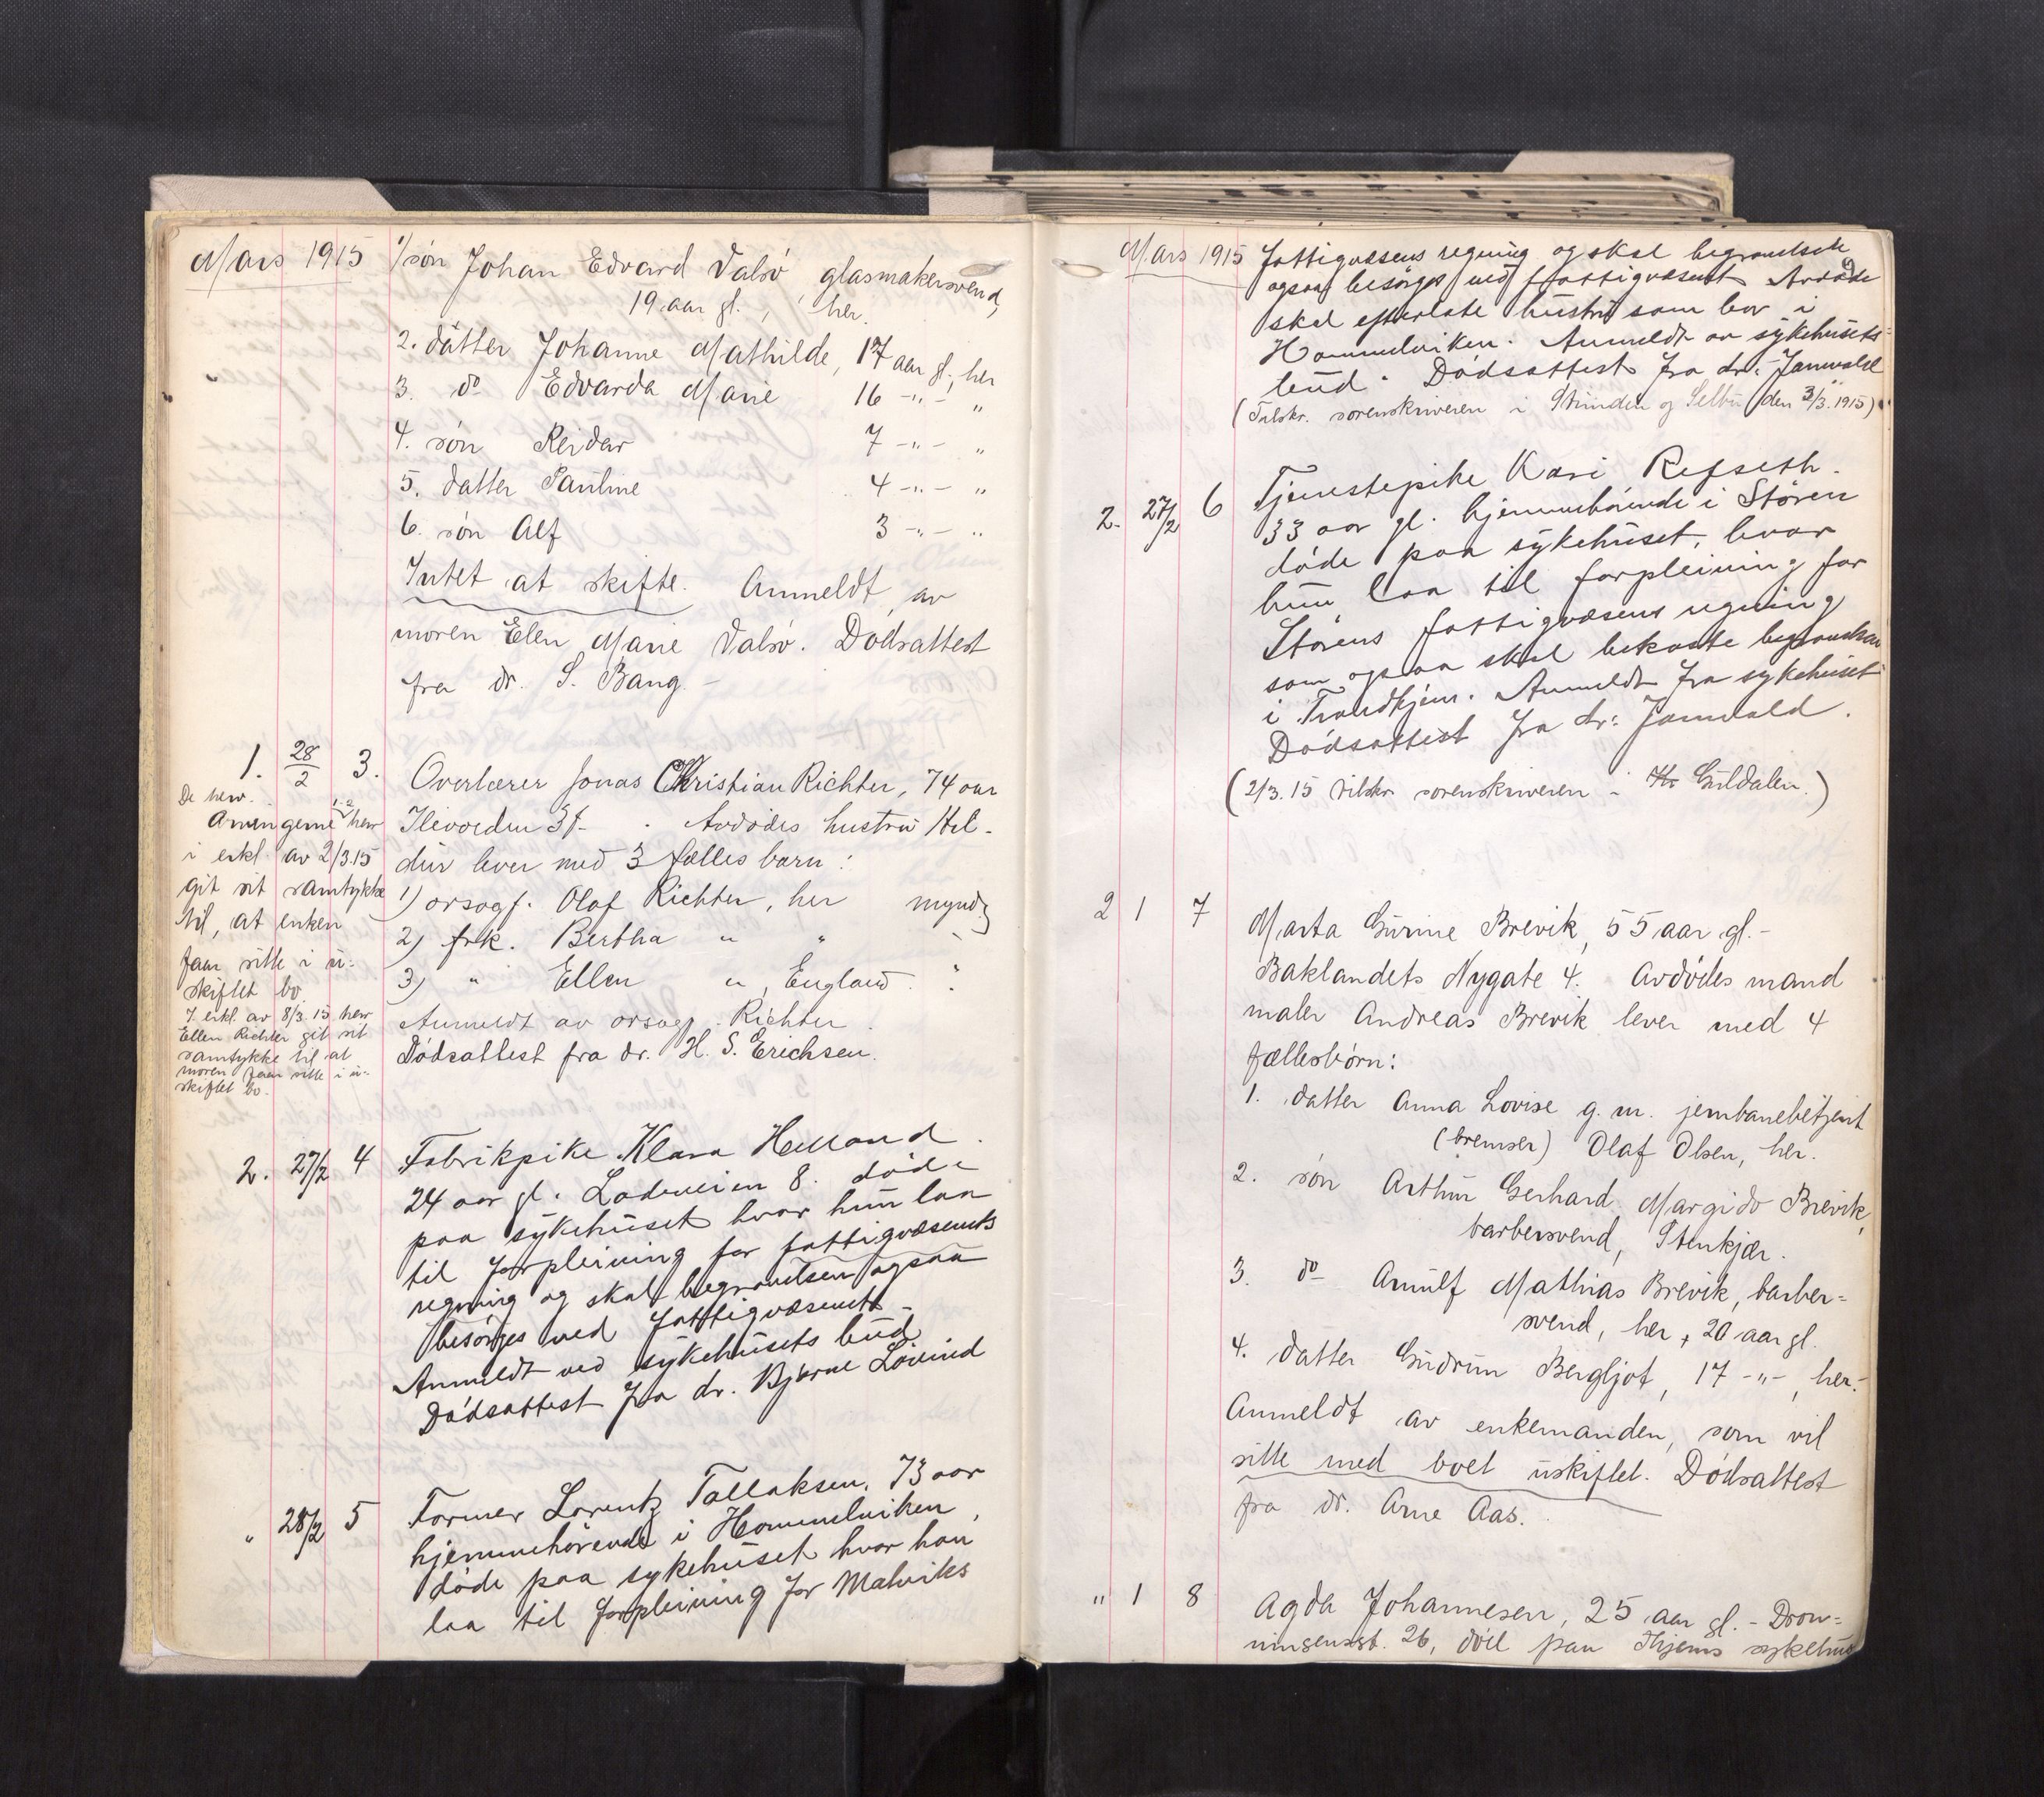 Mars 1915
1/ søn Johan Edvard Valsø, glasmakersvend,
19 aar gl., her.
2. datter Johanne Mathilde, 17 aar gl., her
3. do Edvarda Marie 16 -"- "
4. søn Reidar 7 -"- "
5. datter Pauline 4 -"- "
6. søn Alf 3 -"- "
Intet at skifte. Anmeldt av
moren Elen Marie Valsø. Dødsattest
fra dr. S. Bang. -
1. 28/2 3.
Overlærer Jonas Christian Richter, 74 aar
Ilevolden 3f- . Avdødes hustru Hil-
dur lever med 3 fælles barn:
1) orsagf. Olaf Richter, her myndg
2) frk. Bertha " " "
3) " Ellen ", England. "
Anmeldt av orsagf. Richter.
Dødsattest fra dr. H. S. Erichsen.
De herv.
Arvingerne 1-2 har
i erkl. av 2/3.15
git sit samtykke
til, at enken
faar sitte i u-
skiftet bo.
I erkl. av 8/3.15 har
Ellen Richter git sit
samtykke til at
moren faar sitte i u-
skiftet bo.
2. 27/2 4
Fabrikpike Klara Helland.
24 aar gl. Ladeveien 8. døde
paa sykehuset hvor hun laa
til forpleining for fattigvæsenets
regning og skal begravelsen ogsaa
besørges ved fattigvæsenet -
Anmeldt ved sykehusets bud
Dødsattest fra dr. Bjarne
" 28/2 5
Former Lorentz Tallaksen, 73 aar
hjemmehørende i Hommelviken,
døde paa sykehuset hvor han
laa til forpleining for Malviks
Mars 1915
9
Fattigvæsens regning og skal begravelsen
ogsaa besørges ved fattigvæsenet Avdøde
skal efterlate hustru som bor i
Hommelviken. Anmeldt av sykehusets-
bud. Dødsattest fra dr: Jamvold
(Tilskr. sorenskriveren i Strinden og Selbu den 3/3.1915)
2. 27/2 6
Tjenestepike Kari Refseth.
33 aar gl. hjemmehørende i Støren
døde paa sykehuset, hvor
hun laa til forpleining for
Størens fattigvæsens regning
som ogsaa skal bekoste begravelsen
i Trondhjem. Anmeldt fra sykehuset
Dødsattest fra dr: Jamvold.
(2/3.15 tilskr sorenskriveren i Guldalen.)
2 1 7
Marta Gurine Brevik, 55 aar gl. -
Baklandets Nygate 4. Avdødes mand
maler Andreas Brevik lever med 4
fællesbørn:
1. datter Anna Lovise g. m. jernbanebetjent
(bremser) Olaf Olsen, her.
2. søn Arthur Gerhard Margido Brevik,
barbersvend, Stenkjær.
3. do Arnulf Mathias Brevik, barber-
svend, her, 20 aar gl.
4. datter Gudrun Bergljot, 17 -"-, her.
Anmeldt av enkemanden, som vil
sitte med boet uskiftet. Dødsattest
fra dr. Arne Aas.
" 1 8
Agda Johannesen, 25 aar gl. - Dron-
ningensgt. 26, død paa Thjems sykehus